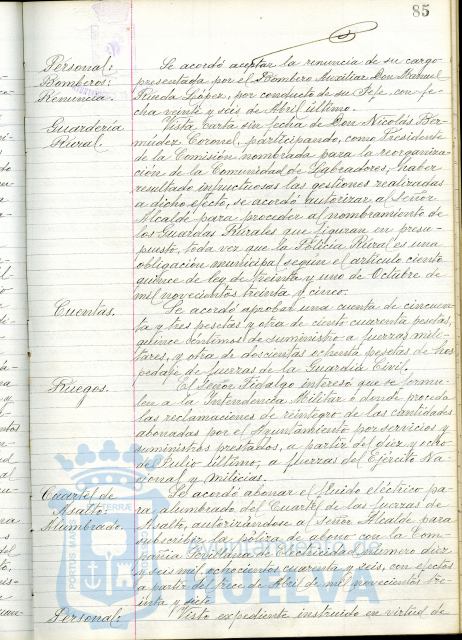 85
Personal:
Bomberos:
Renuncia.
Se acordó aceptar la renuncia de su cargo
presentada por el Bombero Auxiliar Don Manuel
Rueda López, por conducto de su Jefe con fe-
cha veinte y seis de Abril último.
Guardería
Rural.
Vista Carta sin fecha de Don Nicolás Ber-
mudez Coronel, participando, como Presidente
de la Comisión nombrada para la reorganiza-
ción de la Comunidad de Labradores, haber
resultado infructuosas las gestiones realizadas
a dicho efecto, se acordó autorizar al Señor
Alcalde para proceder al nombramiento de
los Guardas Rurales que figuran en presu-
puesto, toda vez que la Policía Rural es una
obligación municipal según el artículo ciento
quince de ley de treinta y uno de Octubre de
mil novecientos treinta y cinco.
Cuentas.
Se acordó aprobar una cuenta de cincuen-
ta y tres pesetas y otra de ciento cuarenta pesetas,
quince céntimos de suministro a fuerzas mili-
tares, y otra de doscientas ochenta pesetas de hos
pedaje de fuerzas de la Guardia Civil.
Ruegos.
El Señor Fidalgo interesó que se formu-
len a la Intendencia Militar o donde proceda
las reclamaciones de reintegro de las cantidades
abonadas por el Ayuntamiento por servicios y
suministros prestados, a partir del diez y ocho
de Julio último, a fuerzas del Ejército Na-
cional y Milicias.
Cuartel de
Asalto
Alumbrado.
Se acordó abonar el fluido eléctrico pa-
ra alumbrado del Cuartel de las fuerzas de
Asalto, autorizándose al Señor Alcalde para
subscribir la póliza de abono con la Com-
pañía de Electricidad número diez
y seis mil ochocientos cuarenta y seis, con efectos
a partir del trece de Abril de mil novecientos tre-
inta y siete.
Personal:
Visto expediente instruido en virtud de
HUELVA